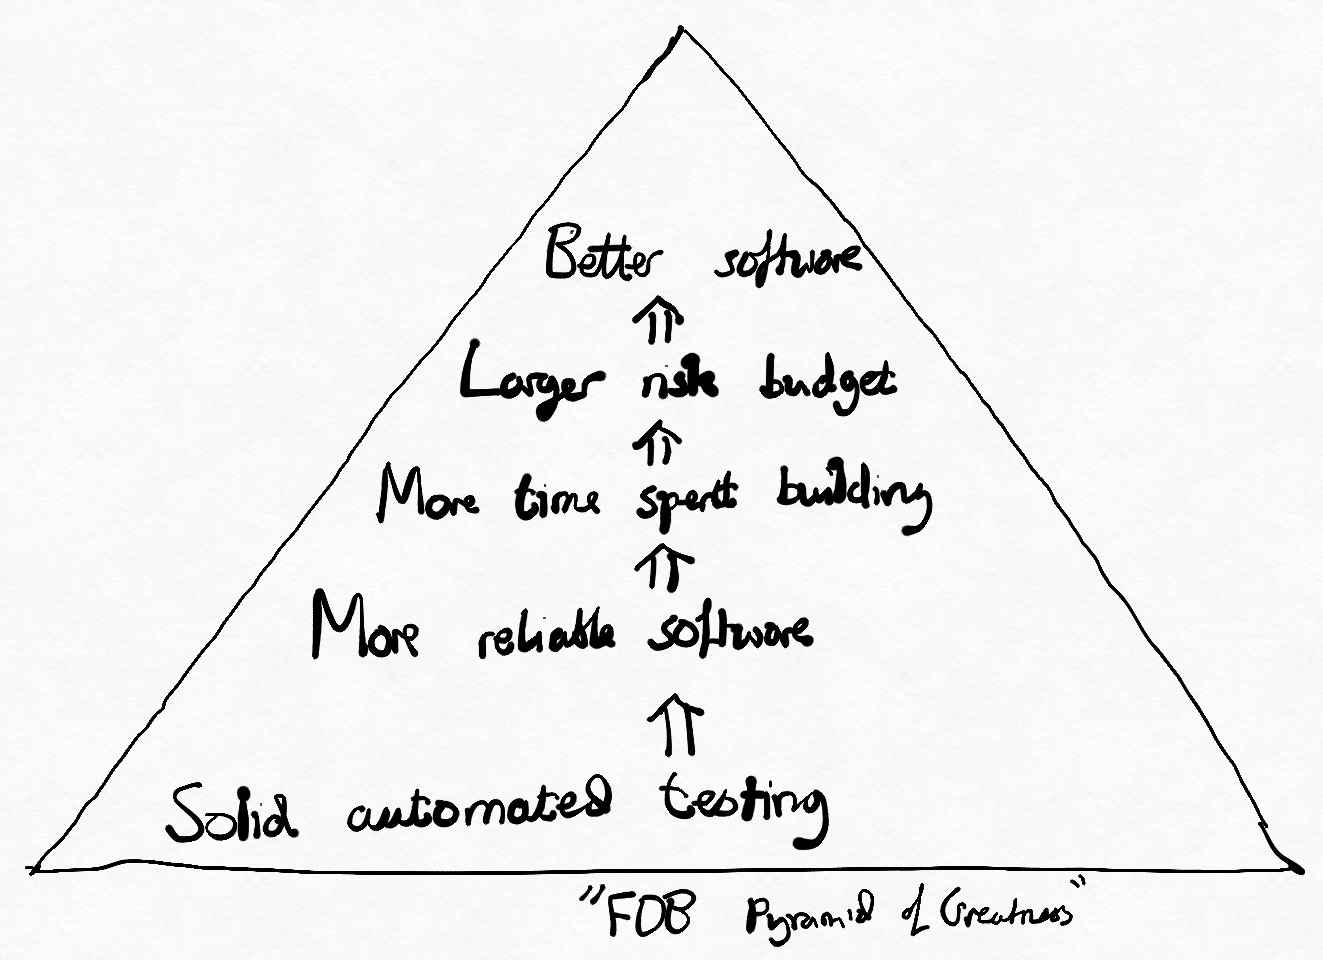 Better software
Larger risk budget
More time spent building
More reliable software
Solid automated testing
"FDB Pyramid of Greatness"